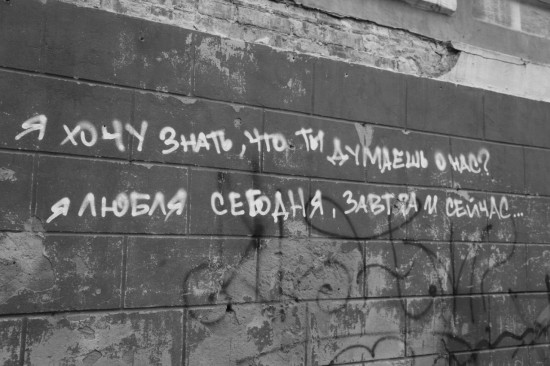 Я ХОЧУ ЗНАТЬ, ЧТО ТЫ ДУМАЕШЬ О НАС?
Я ЛЮБЛЯ СЕГОДНЯ, ЗАВТРА И СЕЙЧАС...